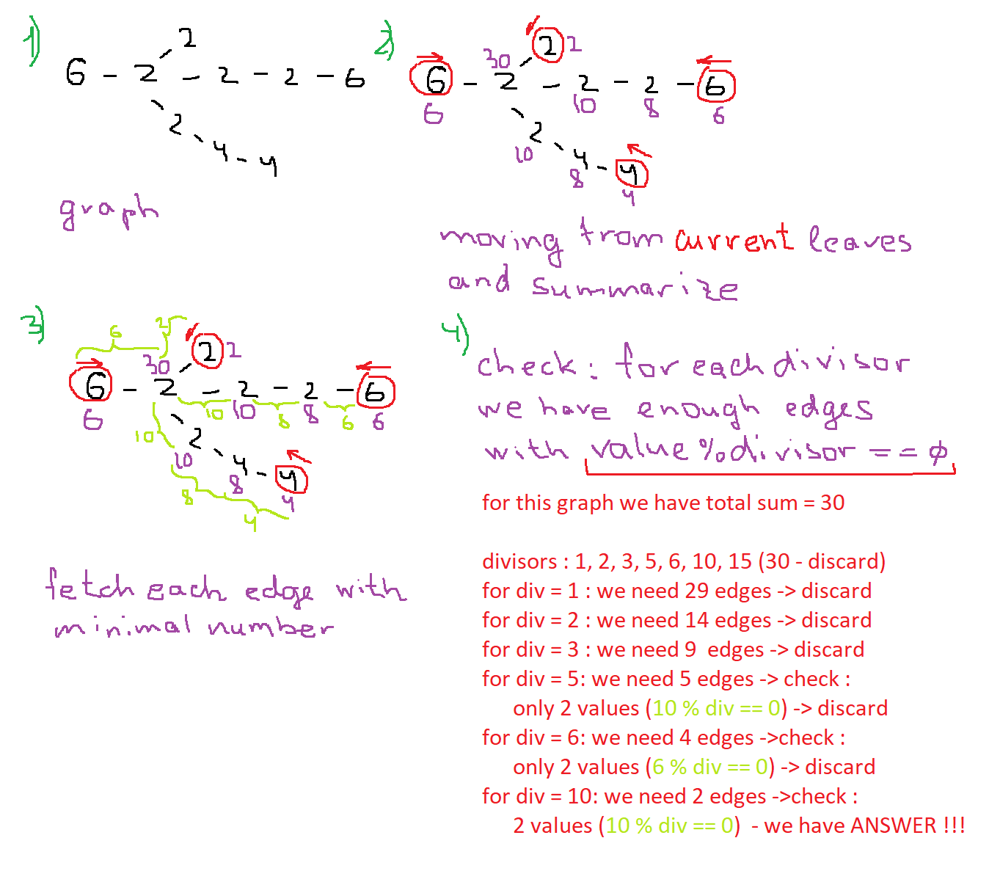 1)
2
6 - 2 - 2 - 2 - 6
2
4 - 4
graph
2)
30 2 2
6 - 2 - 2 - 2 - 6
6 10 8 6
2
10 4 - 4
8 4
moving from current leaves
and summarize
3)
6 2
30 2 2
6 - 2 - 2 - 2 - 6
6 10 10 8 8 6 6
10 2
10 4 - 4
8 8 4
4
fetch each edge with
minimal number
4)
check: for each divisor
we have enough edges
with value % divisor == 0
for this graph we have total sum = 30
divisors : 1, 2, 3, 5, 6, 10, 15 (30 - discard)
for div = 1 : we need 29 edges -> discard
for div = 2 : we need 14 edges -> discard
for div = 3 : we need 9 edges -> discard
for div = 5: we need 5 edges -> check :
only 2 values (10 % div == 0) -> discard
for div = 6: we need 4 edges ->check :
only 2 values (6 % div == 0) -> discard
for div = 10: we need 2 edges ->check :
2 values (10 % div == 0) - we have ANSWER !!!